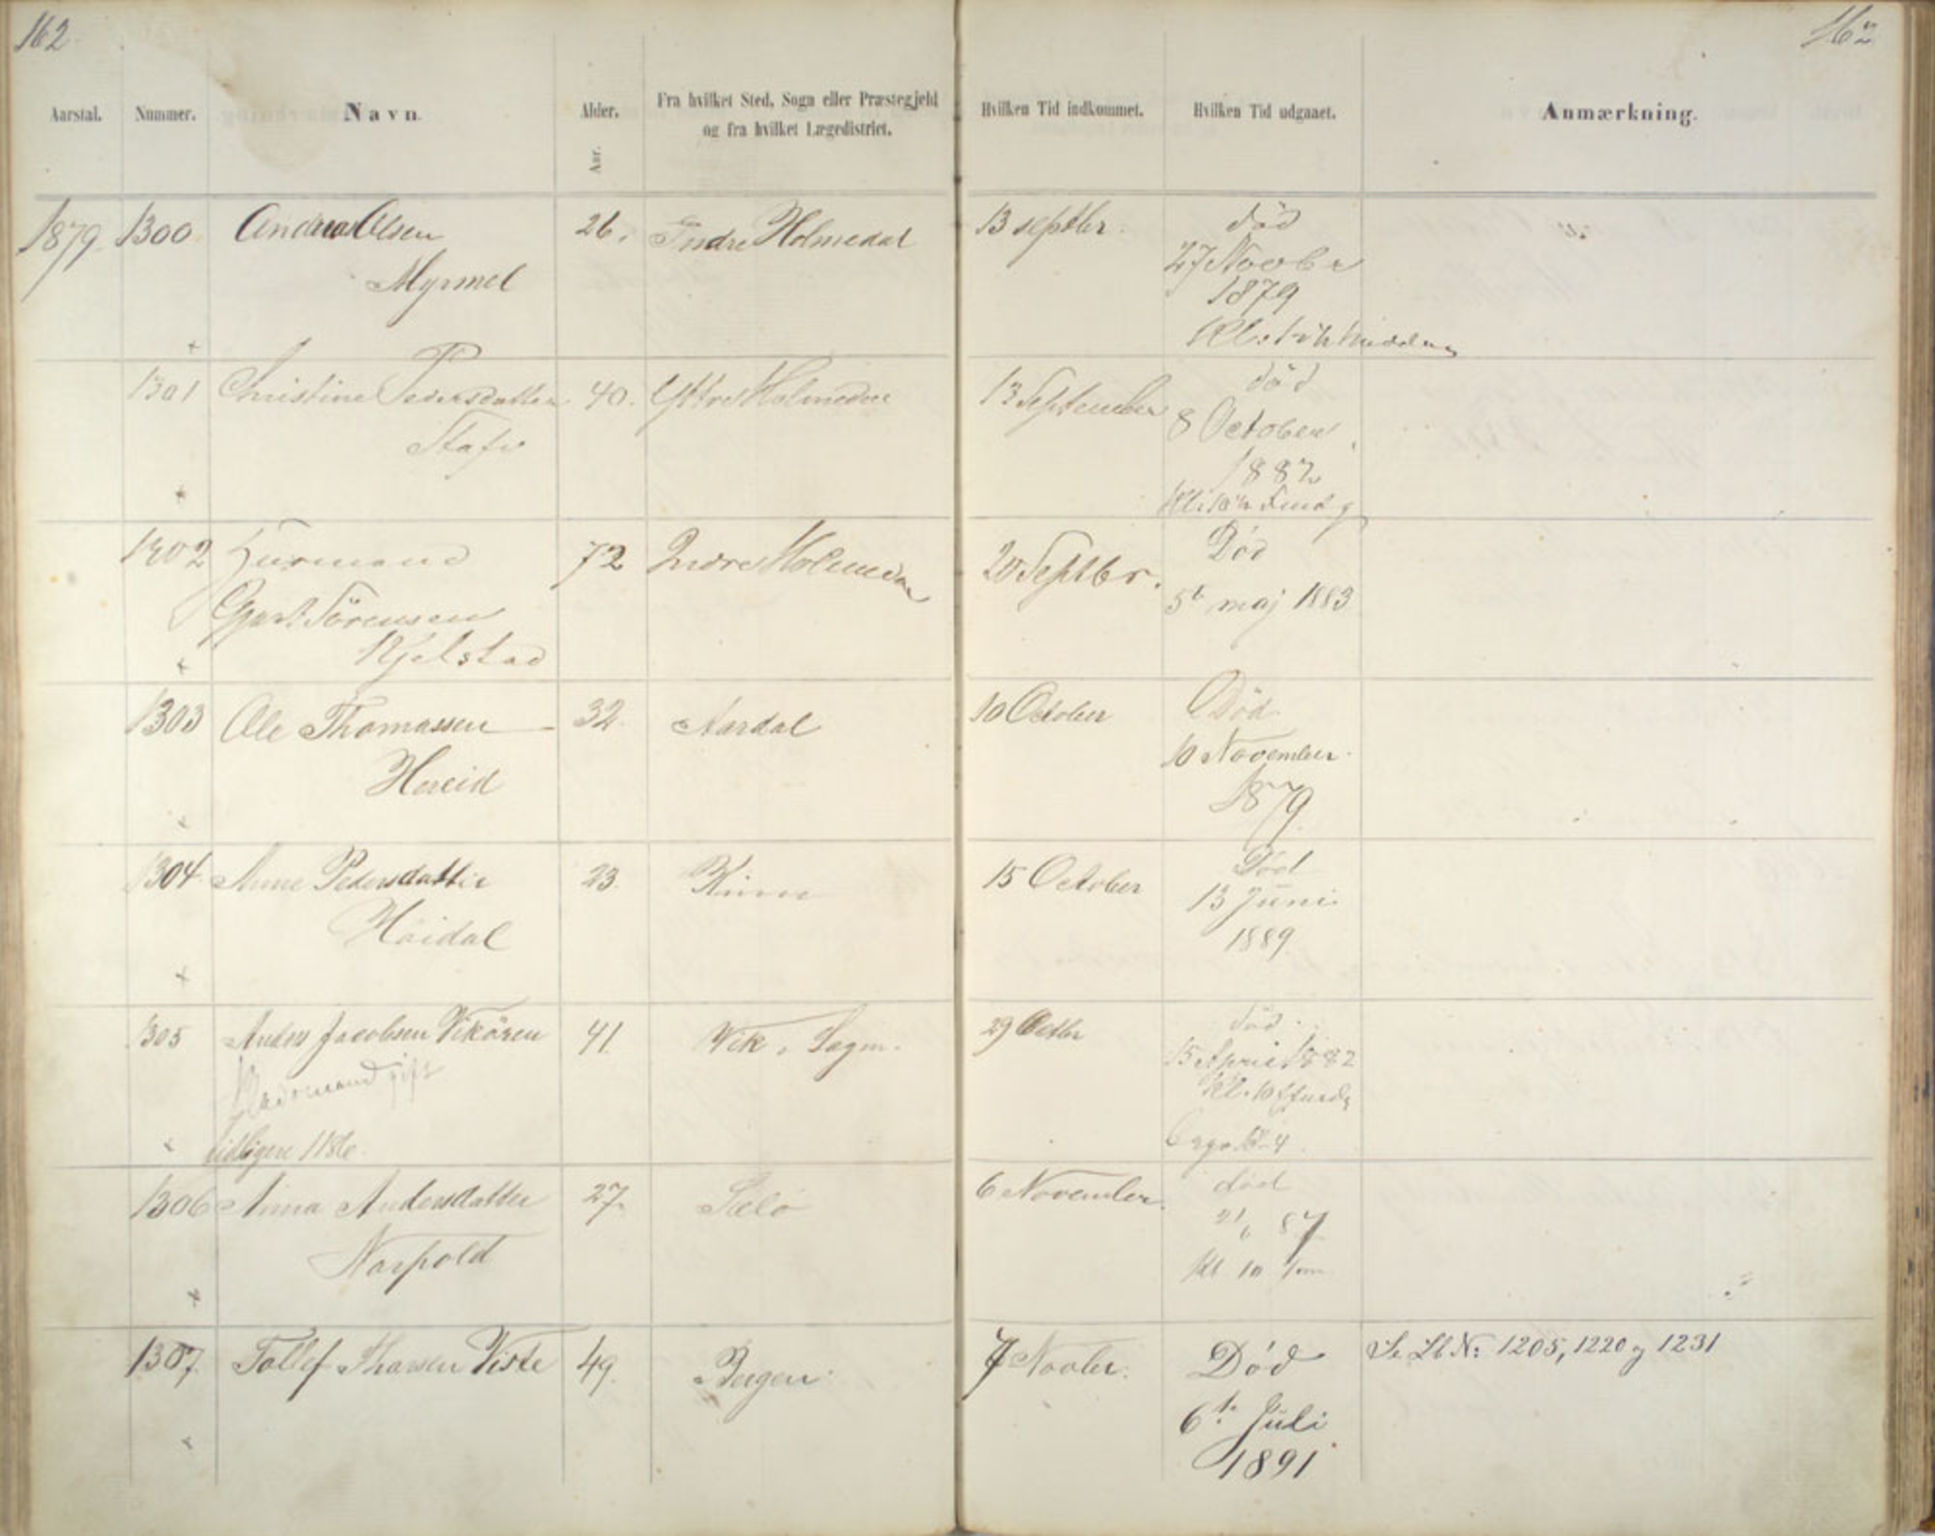 162
162
Aarstal. Nummer. Navn. Alder. Aar. Fra hvilket Sted, Sogn eller Præstegjeld og fra hvilket Lægedistrict. Hvilken Tid indkommet. Hvilken Tid udgaaet. Anmærkning.
1879 1300 Andrea Olsen 26. Indre Holmedal 13 septbr. død
Myrmel 27 Novbr
1879
1301 Christine Pedersdatter 40. Yttre Holmedal 13 September død
8 October
1882
1302 72 Indre Holmedal 20 Septbr. Død
Gjert Sörensen 5t maj 1883
Kjelstad
1303 Ole Thomassen 32. Aardal 10 October Död
Hereid 10 November
1879
1304 Anne Pedersdatter 23. Kinn 15 October Död
Höidal 13 Juni
1889
1305 Anders Jacobsen Vikören 41. Vik, Sogn. 29 Octbr død
gift 15 April 1882
Kl. 10
tidligere
1306 Anna Andersdatter 27. Selö 6 November død
21 6 87
Kl 10
1307. Tollef Viste 49. Bergen 7 Novbr. Død Se Lb N: 1205, 1220 og 1231
6t. Juli
1891